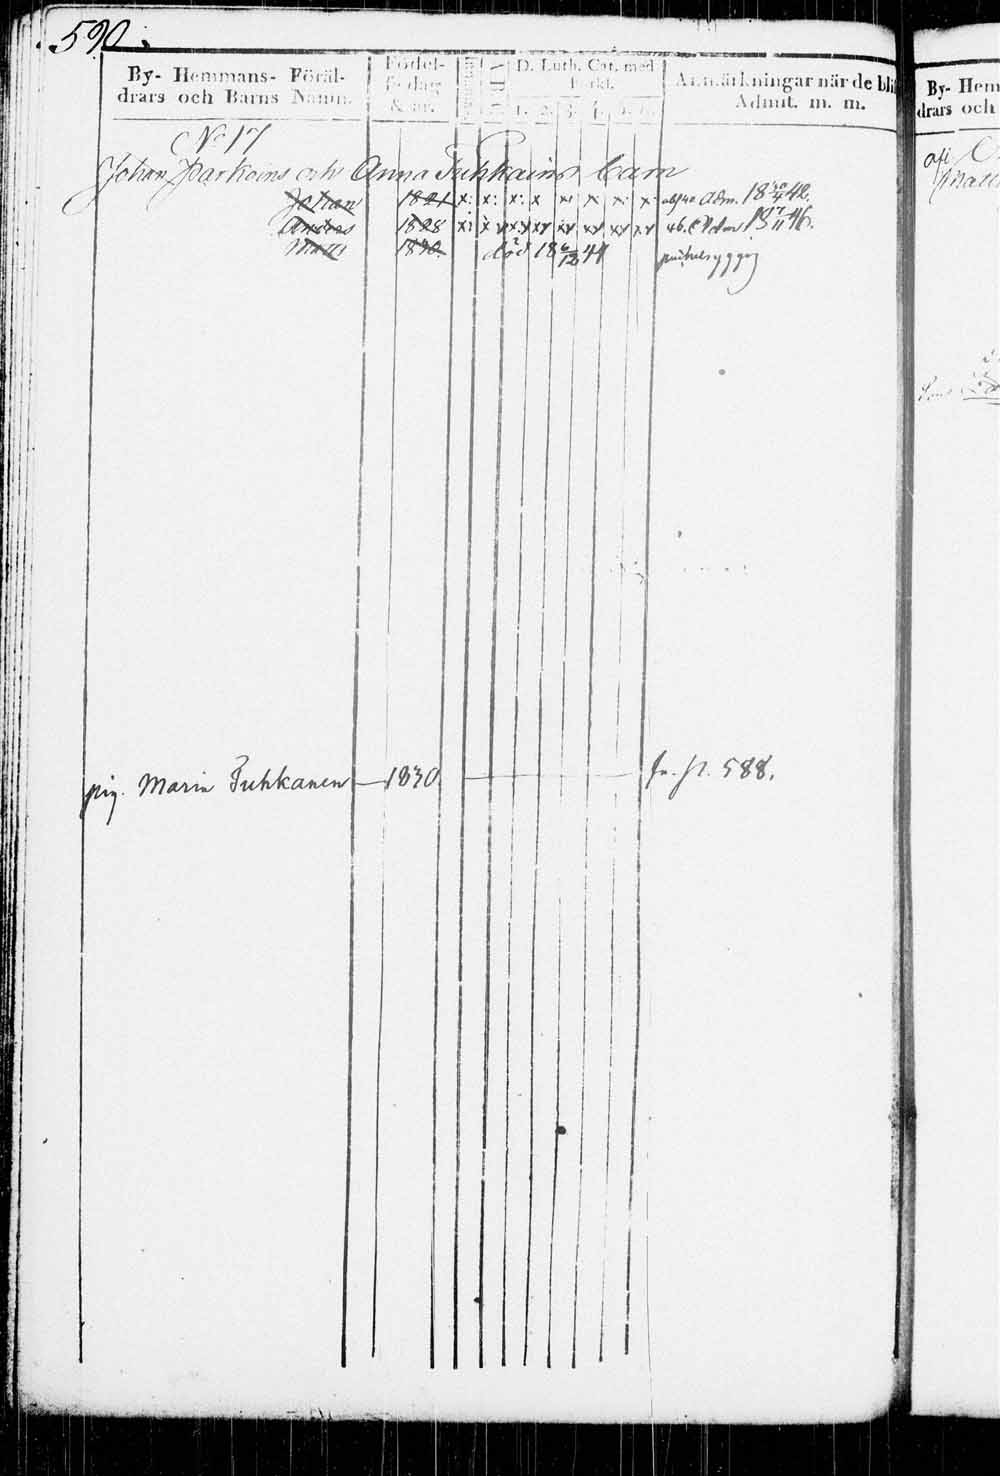 590.
By- Hemmans- Föräl-
drars och Barns Namn.
Födel-
sedag
& år.
D. Luth. Cat. med
Förkl.
1. 2. 3. 4. 5. 6.
Anmärkningar när de bli
Admit. m. m.
No 17
Johan Parkoins och Anna Tuhkains barn
Johan 1821 x: x: x: x x: x: x: x: Adm. 18 30/4 42.
Andres 1828 18 17/11 46.
Matts 1830 död 18 6/12 44
pig. Maria Tuhkanen — 1830. — fr. p. 588.
By- Hem
drars och